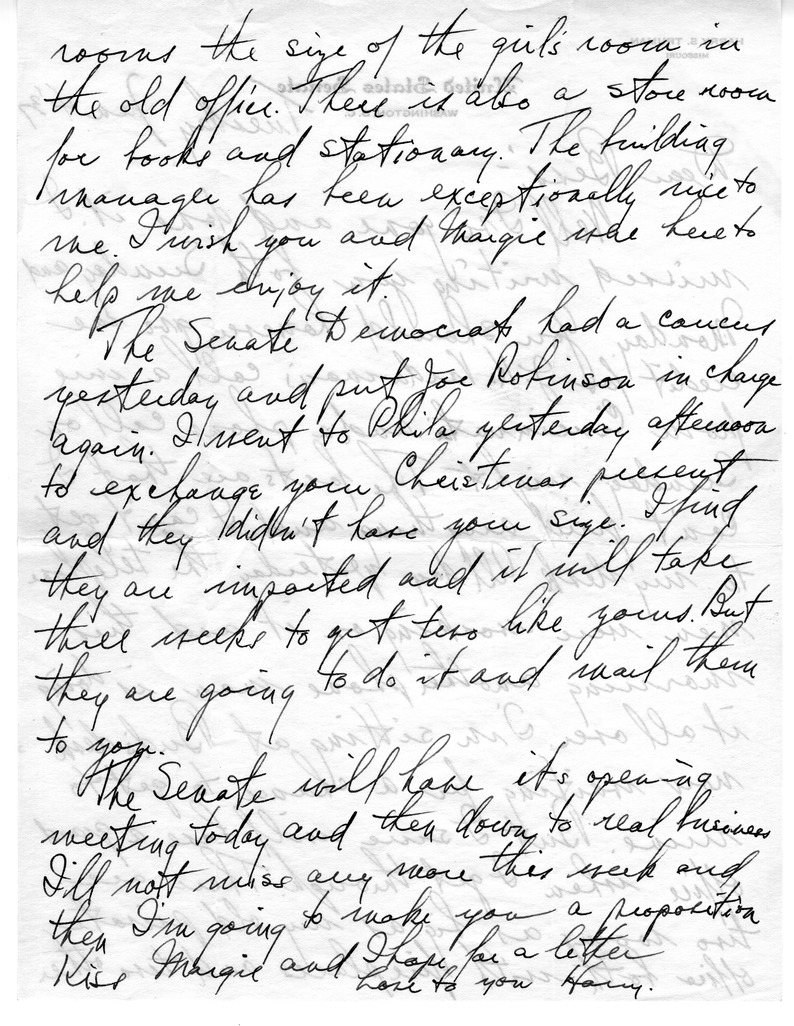 rooms the size of the girl's room in
the old office. There is also a store room
for books and stationary. The building
manager has been exceptionally nice to
me. I wish you and Margie were here to
help me enjoy it.
The Senate Democrats had a caucus
yesterday and put Joe Robinson in charge
again. I went to Phila yesterday afternoon
to exchange your Christmas present
and they didn't have your size. I find
they are imported and it will take
three weeks to get two like yours. But
they are going to do it and mail them
to you.
The Senate will have its opening
meeting today and then down to real business
I'll not miss any more this week and
then I'm going to make you a proposition
Kiss Margie and I hope for a letter
Love to you Harry.